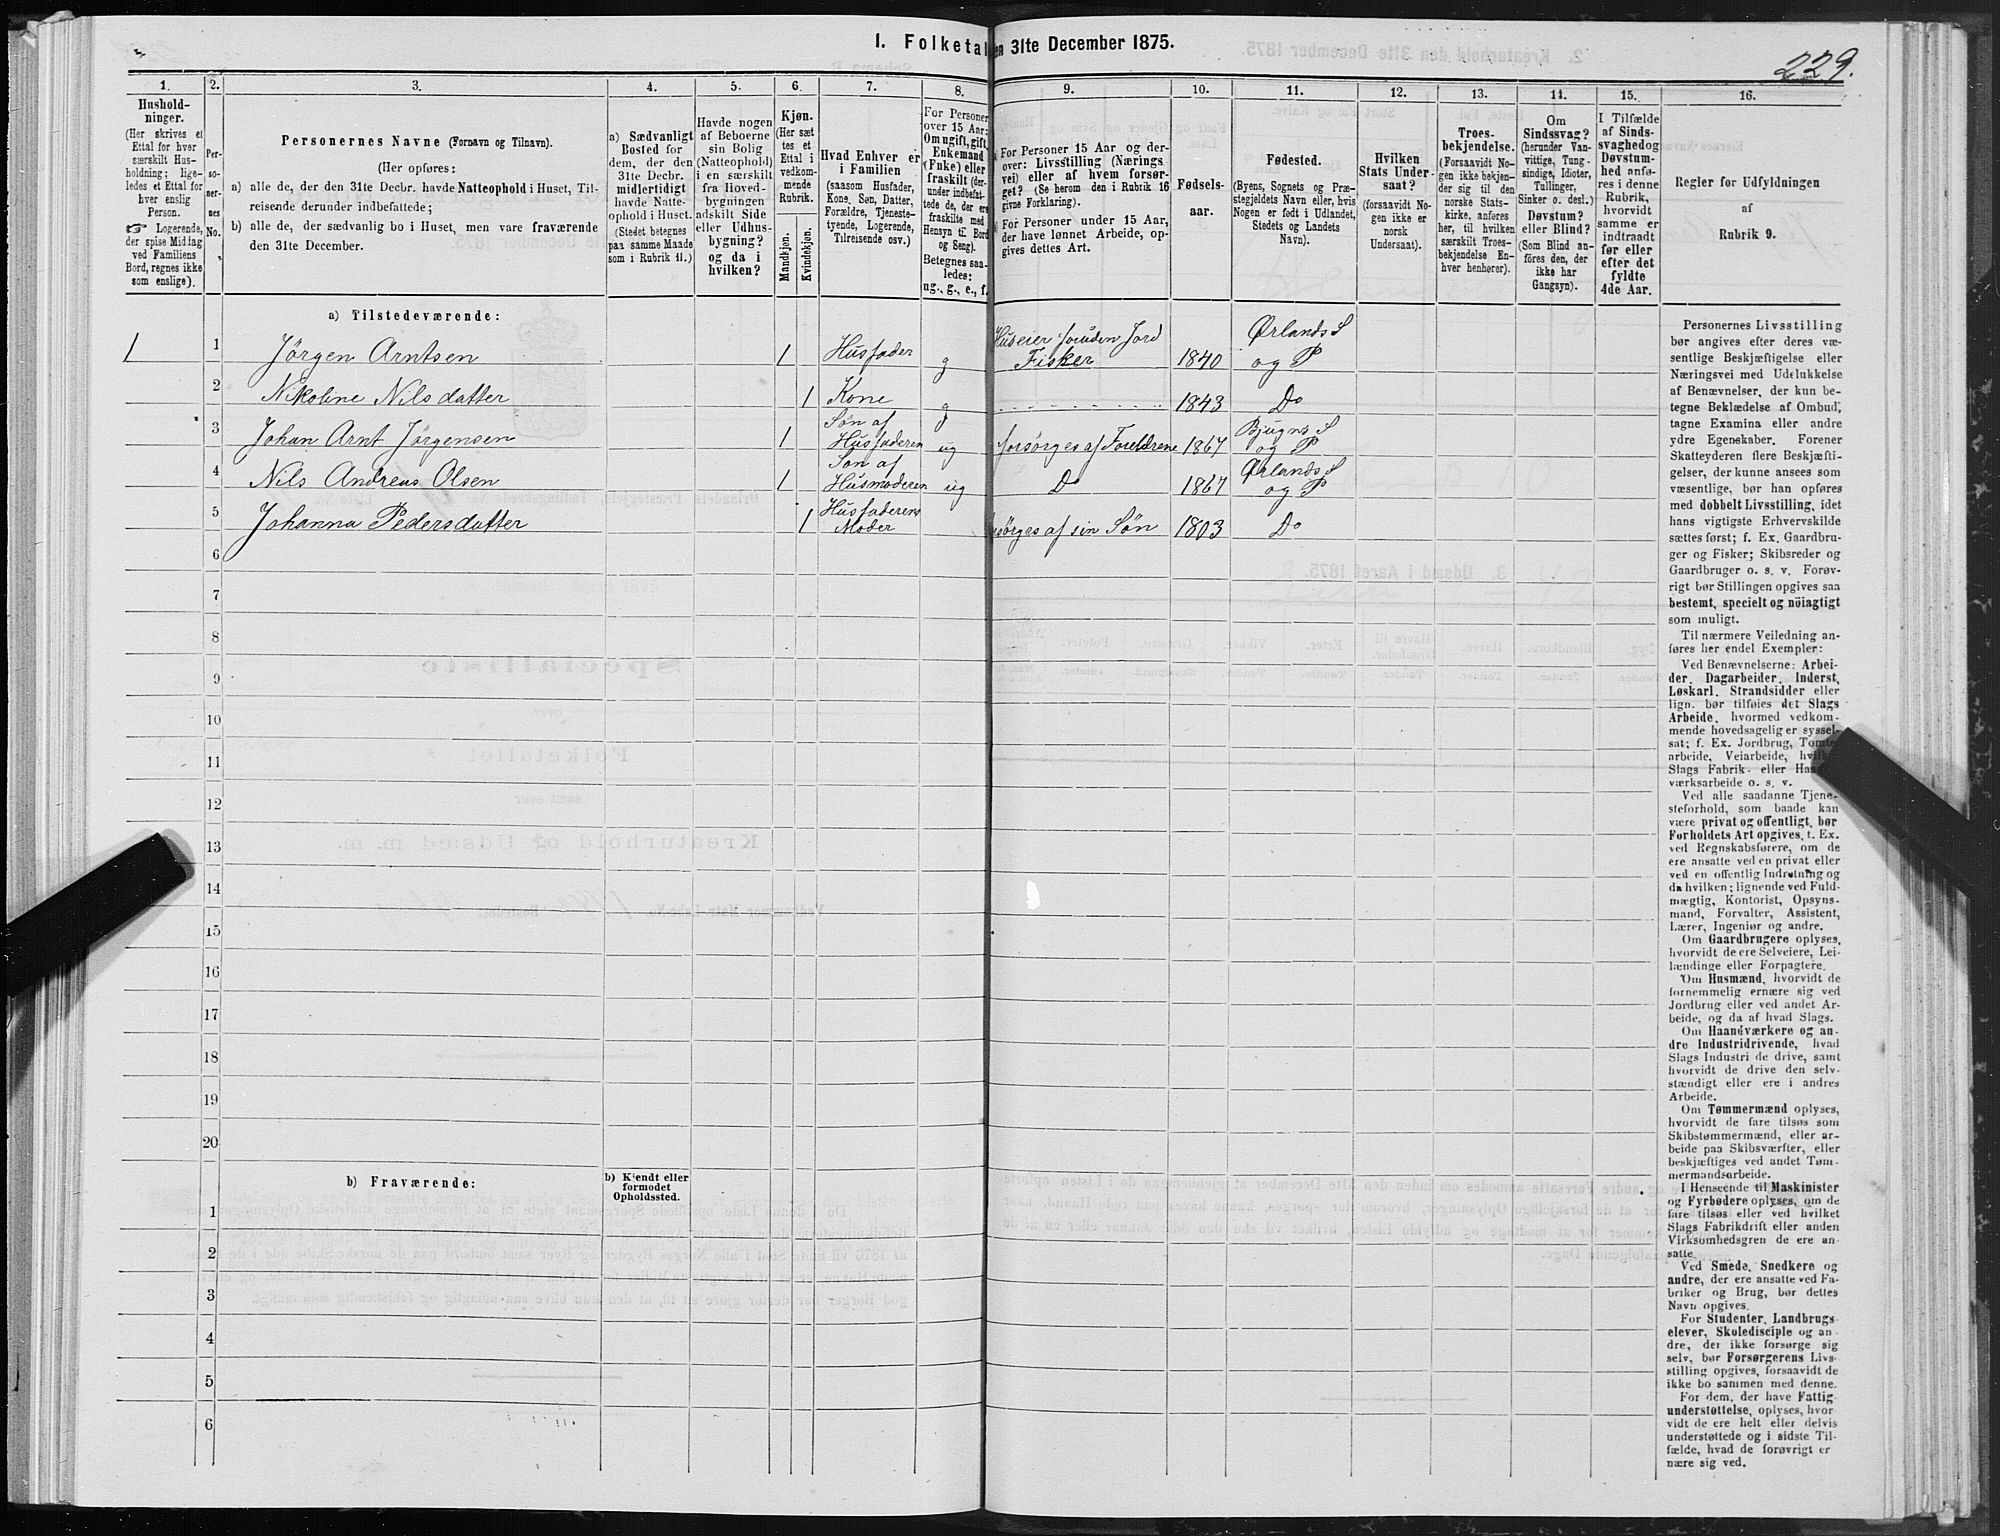 I. Folketal en 31te December 1875.
229.
1.
Hushold-
ninger.
(Her skrives et
Ettal for hver
særskilt Hus-
holdning; lige-
ledes et Ettal for
hver enslig
Person.
☞ Logerende,
der spise Middag
ved Familiens
Bord, regnes ikke
som enslige).
2.
Per-
so-
ner-
nes
No.
3.
Personernes Navne (Fornavn og Tilnavn).
(Her opføres:
a) alle de, der den 31te Decbr. havde Natteophold i Huset, Til-
reisende derunder indbefattede;
b) alle de, der sædvanlig bo i Huset, men vare fraværende
den 31te December.
4.
a) Sædvanligt
Bosted for
dem, der den
31te Decbr.
midlertidigt
havde Natte-
ophold i Huset.
(Stedet betegnes
paa samme Maade
som i Rubrik 11.)
5.
Havde nogen
af Beboerne
sin Bolig
(Natteophold)
i en særskilt
fra Hoved-
bygningen
adskilt Side
eller Udhus-
bygning?
og da i
hvilken?
6.
Kjøn.
(Her sæt-
tes et
Ettal i
vedkom-
mende
Rubrik.
Mandkjøn.
Kvindekjøn.
7.
Hvad Enhver er
i Familien
(saasom Husfader,
Kone, Søn, Datter,
Forældre, Tjeneste-
tyende, Logerende,
Tilreisende osv.)
8.
For Personer
over 15 Aar:
Om ugift, gift,
Enkemand
(Enke) eller
fraskilt (der-
under indbefat-
tede de, der ere
fraskilte med
Hensyn til Bord
og Seng).
Betegnes saa-
ledes:
ug., g., e., f.
9.
For Personer 15 Aar og der-
over: Livsstilling (Nærings
vei) eller af hvem forsør-
get? (Se herom den i Rubrik 16
givne Forklaring).
For Personer under 15 Aar,
der have lønnet Arbeide, op-
gives dettes Art.
10.
Fødsels-
aar.
11.
Fødested.
(Byens, Sognets og Præ-
stegjeldets Navn eller, hvis
Nogen er født i Udlandet,
Stedets og Landets
Navn).
12.
Hvilken
Stats Under-
saat?
(forsaavidt No-
gen ikke er
norsk
Undersaat).
13.
Troes-
bekjendelse.
(Forsaavidt No-
gen ikke bekjen-
der sig til den
norske Stats-
kirke, anføres
her, til hvilken
særskilt Troes-
bekjendelse En-
hver henhører).
14.
Om
Sindssvag?
(herunder Van-
vittige, Tung-
sindige, Idioter,
Tullinger,
Sinker o. desl.)
Døvstum?
eller Blind?
(Som Blind an-
føres den, der
ikke har
Gangsyn).
15.
I Tilfælde
af Sinds-
svaghed og
Døvstum-
hed anfø-
res i denne
Rubrik,
hvorvidt
samme er
indtraadt
før eller
efter det
fyldte
4de Aar.
16.
Regler for Udfyldningen
af
Rubrik 9.
a) Tilstedeværende:
1 1 Jörgen Arntsen 1 Husfader g Huseier foruden Jord
Fisker 1840 Ørlands S
og P
2 Nikoline Nilsdatter 1 Kone g 1843 Do
3 Johan Arnt Jörgensen 1 Søn af
Husfaderen ug forsörges af Foreldrene 1867 Bjugns S
og P
4 Nils Andreas Olsen 1 Søn af
Husmoderen ug Do 1867 Ørlands S
og P
5 Johanna Pedersdatter 1 Husfaderens
Moder sörges af sin Sön 1803 Do
6
7
8
9
10
11
12
13
14
15
16
17
18
19
20
b) Fraværende:
b) Kjendt eller
formodet
Opholdssted.
1
2
3
4
5
6
Personernes Livsstilling
bør angives efter deres væ-
sentlige Beskjæftigelse eller
Næringsvei med Udelukkelse
af Benævnelser, der kun be-
tegne Beklædelse af Ombud,
tagne Examina eller andre
ydre Egenskaber. Forener
Skatteyderen flere Beskjæfti-
gelser, der kunne ansees som
væsentlige, bør han opføres
med dobbelt Livsstilling, idet
hans vigtigste Erhvervskilde
sættes først; f. Ex. Gaardbru-
ger og Fisker; Skibsreder og
Gaardbruger o. s. v. Forøv-
rigt bør Stillingen opgives saa
bestemt, specielt og nöiagtigt
som muligt.
Til nærmere Veiledning an-
føres her endel Exempler:
Ved Benævnelserne: Arbei-
der, Dagarbeider, Inderst,
Løskarl, Strandsidder eller
lign. bør tilføies det Slags
Arbeide, hvormed vedkom-
mende hovedsagelig er syssel-
sat; f. Ex. Jordbrug, Tomte-
arbeide, Veiarbeide, hvilket
Slags Fabrik- eller Haand-
værksarbeide o. s. v.
Ved alle saadanne Tjene-
steforhold, som baade kan
være privat og offentligt, bør
Forholdets Art opgives, t. Ex.
ved Regnskabsførere, om de
ere ansatte ved en privat eller
ved en offentlig Indretning og
da hvilken; lignende ved Fuld-
mægtig, Kontorist, Opsyns-
mand, Forvalter, Assistent,
Lærer, Ingeniør og andre.
Om Gaardbrugere oplyses,
hvorvidt de ere Selveiere, Lei-
lændinge eller Forpagtere.
Om Husmænd, hvorvidt de
fornemmelig ernære sig ved
Jordbrug eller ved andet Ar-
beide, og da af hvad Slags.
Om Haandværkere og an-
dre Industridrivende, hvad
Slags Industri de drive, samt
hvorvidt de drive den selv-
stændigt eller ere i andres
Arbeide.
Om Tømmermænd oplyses,
hvorvidt de fare tilsøs som
Skibstømmermænd, eller ar-
beide paa Skibsværfter, eller
beskjæftiges ved andet Tøm-
mermandsarbeide.
I Henseende til Maskinister
og Fyrbødere oplyses, om de
fare tilsøs eller ved hvilket
Slags Fabrikdrift eller anden
Virksomhedsgren de ere an-
satte.
Ved Smede, Snedkere og
andre, der ere ansatte ved Fa-
briker og Brug, bør dettes
Navn opgives.
For Studenter, Landbrugs-
elever, Skoledisciple og an-
dre, der ikke forsørge sig
selv, bør Forsørgerens Livs-
stilling opgives, forsaavidt de
ikke bo sammen med denne.
For dem, der have Fattig-
understøttelse, oplyses, hvor-
vidt de ere helt eller delvis
understøttede og i sidste Til-
fælde, hvad de forøvrigt er
nære sig ved.